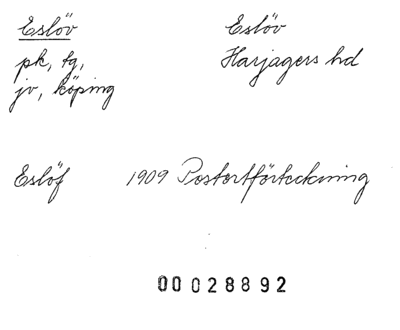 Eslöv
pk, tg,
jv, köping
Eslöv
Harjagers hd
Eslöf 1909 Postortförteckning
00028892